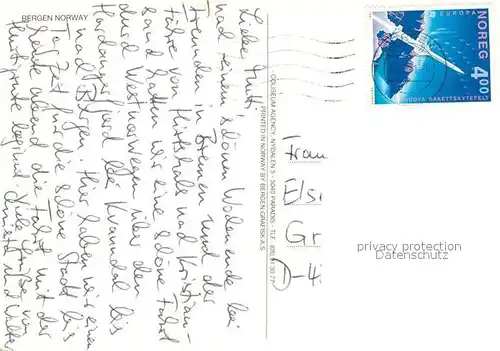 BERGEN NORWAY
Liebe Mutti!
nach einem schönen Wochenende bei
Freunden in Bremen und der
Fähre von Hirtshals nach Kristian-
sand hatten wir eine schöne Fahrt
durch Westnorwegen über den
Hardangerfjord bei Kvanndal bis
nach Bergen. Hier haben wir einen
Tag Zeit für die schöne Stadt bis
heute abend die Fahrt mit der
Hurtigrute beginnt. Viele Grüße von
Christa und Walter
COLISEUM AGENCY, NYDALEN 5 - 5040 PARADIS - TLF. (05) 91 30 77
PRINTED IN NORWAY BY BERGEN GRAFISK A.S
EUROPA
NOREG
4,00
ANDØYA RAKETTSKYTEFELT
Frau
Elsi
Gr
D-4
privacy protection
© Veikkos.com